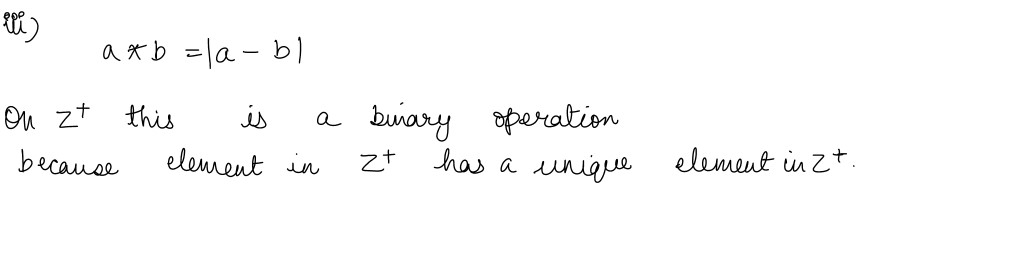 iii)
a * b = |a - b|
On Z⁺ this is a binary operation
because element in Z⁺ has a unique element in Z⁺.